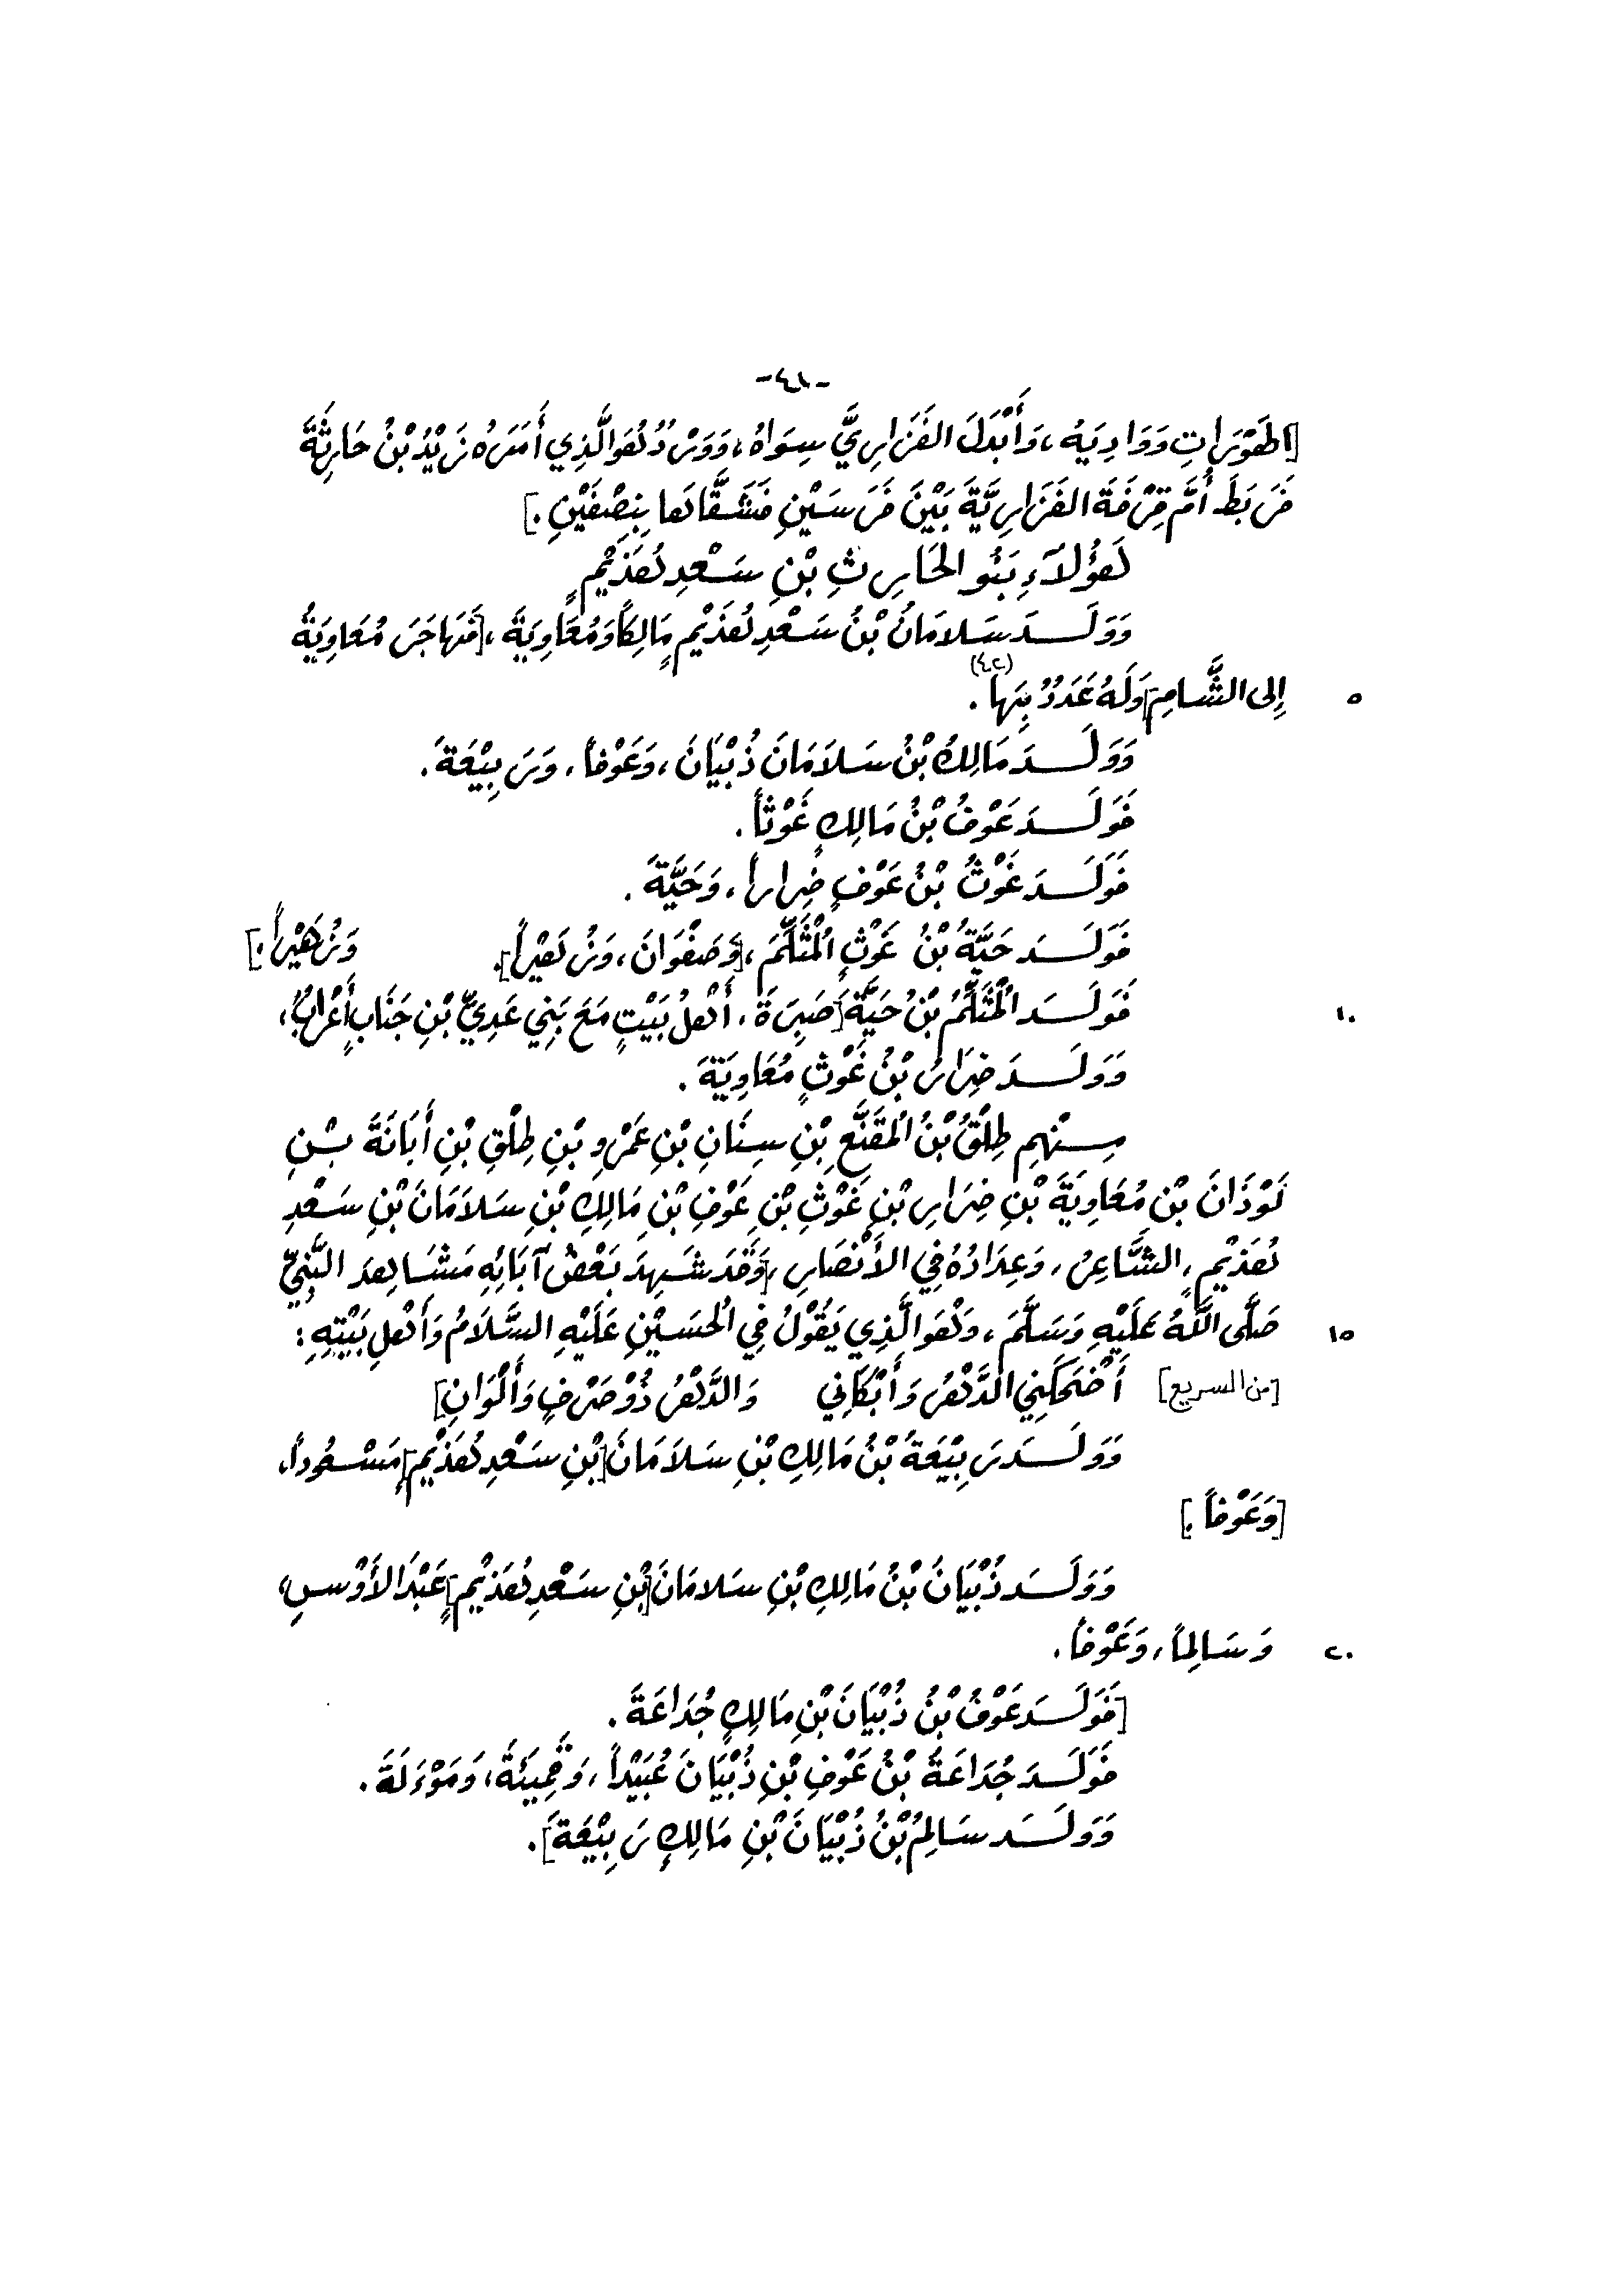 -٤١-
[اطَعَوْرَاتِ وَوَادِيَهُ، وَأَبْدَلَ الفَزَارِيَّ سِوَاهُ، وَوَرْدٌ هُوَ الَّذِي أَمَرَهُ زَيْدُ بْنُ حَارِثَةَ
فَرَبَطَ أُمَّ قِرْفَةَ الفَزَارِيَّةَ بَيْنَ فَرَسَيْنِ فَشَقَّاهَا بِنِصْفَيْنِ.]
هَؤُلاَءِ بَنُو الحَارِثِ بْنِ سَعْدِ هُذَيْمٍ
وَوَلَــدَ سَلاَمَانُ بْنُ سَعْدِ هُذَيْمٍ مَالِكاً وَمُعَاوِيَةَ، [فَهَاجَرَ مُعَاوِيَةُ
٥ إِلى الشَّامِ] وَلَهُ عَدَدٌ بِهَا (٤٢).
وَوَلَــدَ مَالِكُ بْنُ سَلاَمَانَ ذُبْيَانَ، وَعَوْفاً، وَرَبِيْعَةَ.
فَوَلَــدَ عَوْفُ بْنُ مَالِكٍ غَوْثاً.
فَوَلَــدَ غَوْثُ بْنُ عَوْفٍ ضِرَاراً، وَحَيَّةَ.
فَوَلَــدَ حَيَّةُ بْنُ غَوْثٍ الْمُثَلَّمَ، [وَصَفْوَانَ، وَزُهَيْراً]. وَزُهَيْراً.]
١٠ فَوَلَــدَ الْمُثَلَّمُ بْنُ حَيَّةَ [صَبِرَةَ، أَهْلُ بَيْتٍ مَعَ بَنِي عَدِيِّ بْنِ جَنَابٍ أَعْرَابٌ]،
وَوَلَــدَ ضِرَارُ بْنُ غَوْثٍ مُعَاوِيَةَ.
مِــنْهِم طِلْقُ بْنُ الْمُقَنَّعِ بْنِ سِنَانِ بْنِ عَمْرِو بْنِ طِلْقِ بْنِ أَبَانَةَ بْــنِ
لَوْذَانَ بْنِ مُعَاوِيَةَ بْنِ ضِرَارِ بْنِ غَوْثِ بْنِ عَوْفِ بْنِ مَالِكِ بْنِ سَلاَمَانَ بْنِ سَعْدِ
هُذَيْمٍ، الشَّاعِرُ، وَعِدَادُهُ فِي الأَنْصَارِ، [وَقَد شَهِدَ بَعْضُ آبَائِهِ مَشَاهِدَ النَّبِيِّ
١٥ صَلَّى اللَّهُ عَلَيْهِ وَسَلَّمَ، وَهُوَ الَّذِي يَقُوْلُ فِي الْحُسَيْنِ عَلَيْهِ السَّلاَمُ وَأَهْلِ بَيْتِهِ:
[من السريع] أَضْحَكَنِي الدَّهْرُ وَأَبْكَانِي وَالدَّهْرُ ذُوْ صَرْفٍ وَأَلْوَانِ]
وَوَلَــدَ رَبِيْعَةُ بْنُ مَالِكِ بْنِ سَلاَمَانَ [بْنِ سَعْدِ هُذَيْمٍ] مَسْعُوداً،
[وَعَوْفاً.]
وَوَلَــدَ ذُبْيَانُ بْنُ مَالِكِ بْنِ سَلامَانَ [بْنِ سَعْدِ هُذَيْمٍ] عَبْدَ الأَوْسِ،
٢٠ وَسَالِماً، وَعَوْفاً.
[فَوَلَــدَ عَوْفُ بْنُ ذُبْيَانَ بْنِ مَالِكٍ جُدَاعَةَ.
فَوَلَــدَ جُدَاعَةُ بْنُ عَوْفِ بْنِ ذُبْيَانَ عُبَيْداً، وَقَمِيئَةَ، وَمَوْءَلَةَ.
وَوَلَــدَ سَالِمُ بْنُ ذُبْيَانَ بْنِ مَالِكٍ رَبِيْعَةَ].